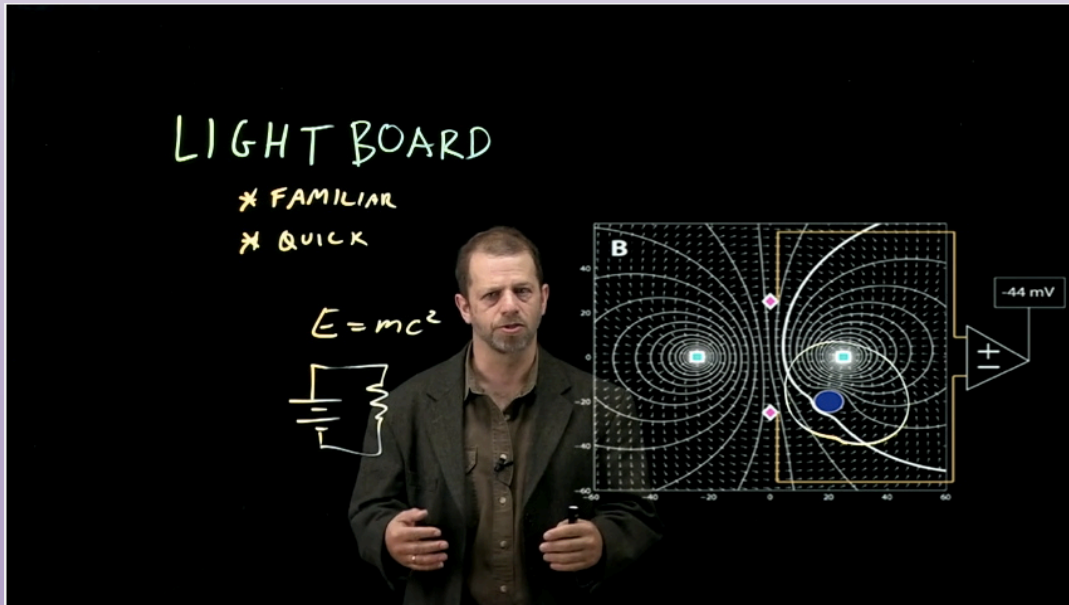 LIGHT BOARD
* FAMILIAR
* QUICK
E = mc²
B
-44 mV
+
−
40
20
0
-20
-40
-60
-60 -40 -20 0 20 40 60